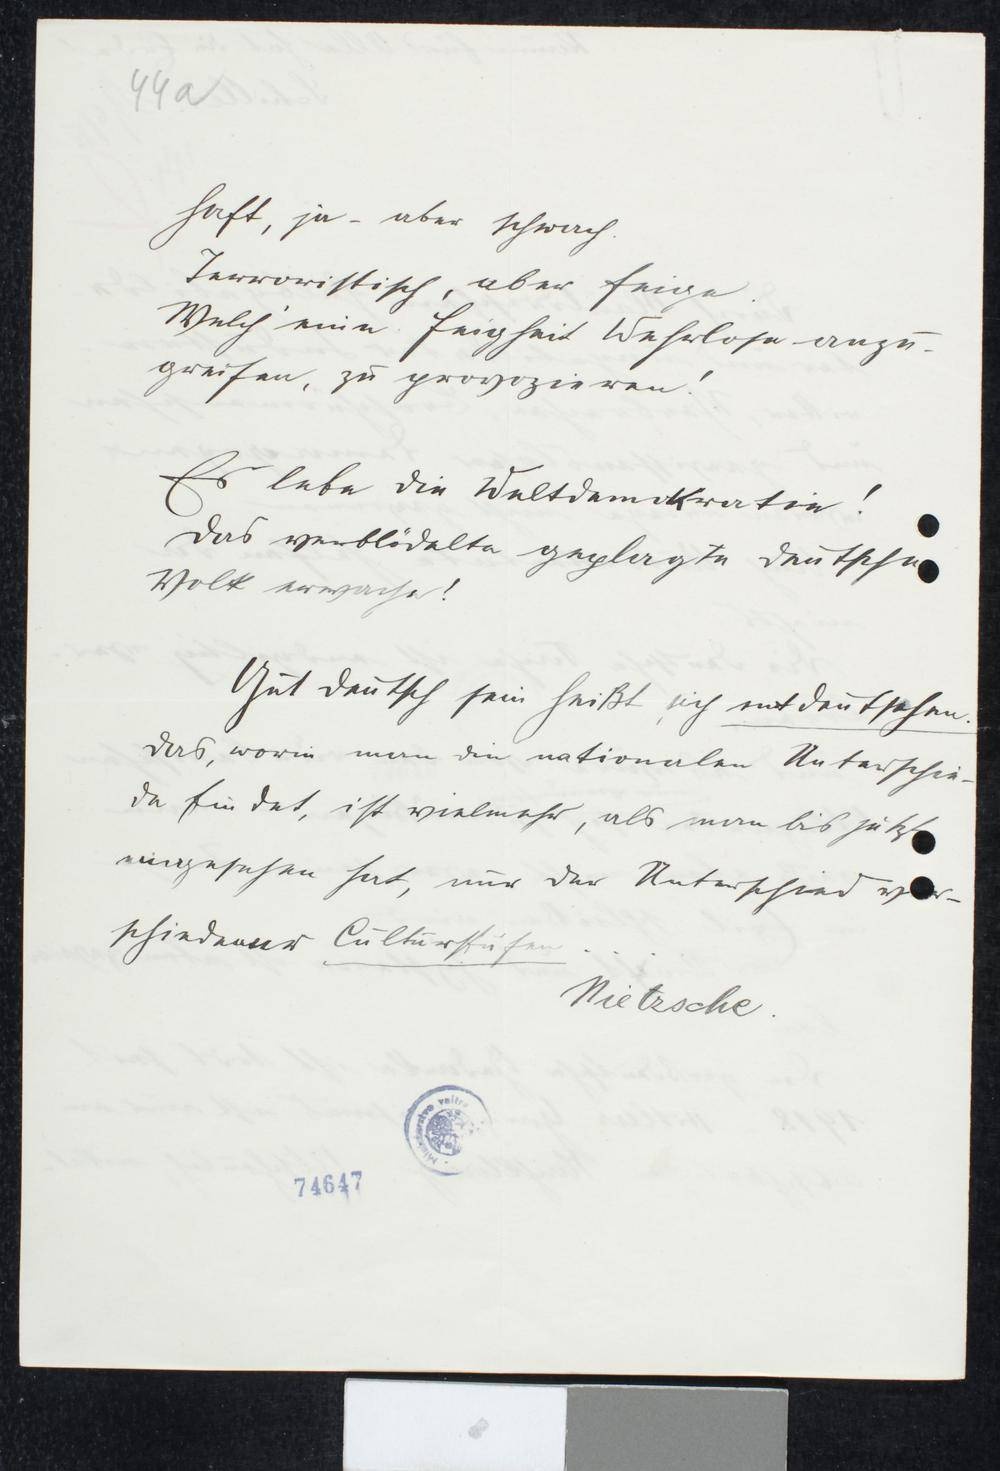 44a
haft, ja - aber schwach.
Terroristisch, aber feige.
Welch' eine Feigheit Wehrlose anzu-
greifen, zu provozieren!
Es lebe die Weltdemokratie!
Das verblödelte geplagte deutsche
Volk erwache!
Gut deutsch sein heißt sich entdeutschen.
Das, worin man die nationalen Unterschie-
de findet, ist vielmehr, als man bis jetzt
eingesehen hat, nur der Unterschied ver-
schiedener Culturstufen . . .
Nietzsche.
Ministerstvo vnitra
74647